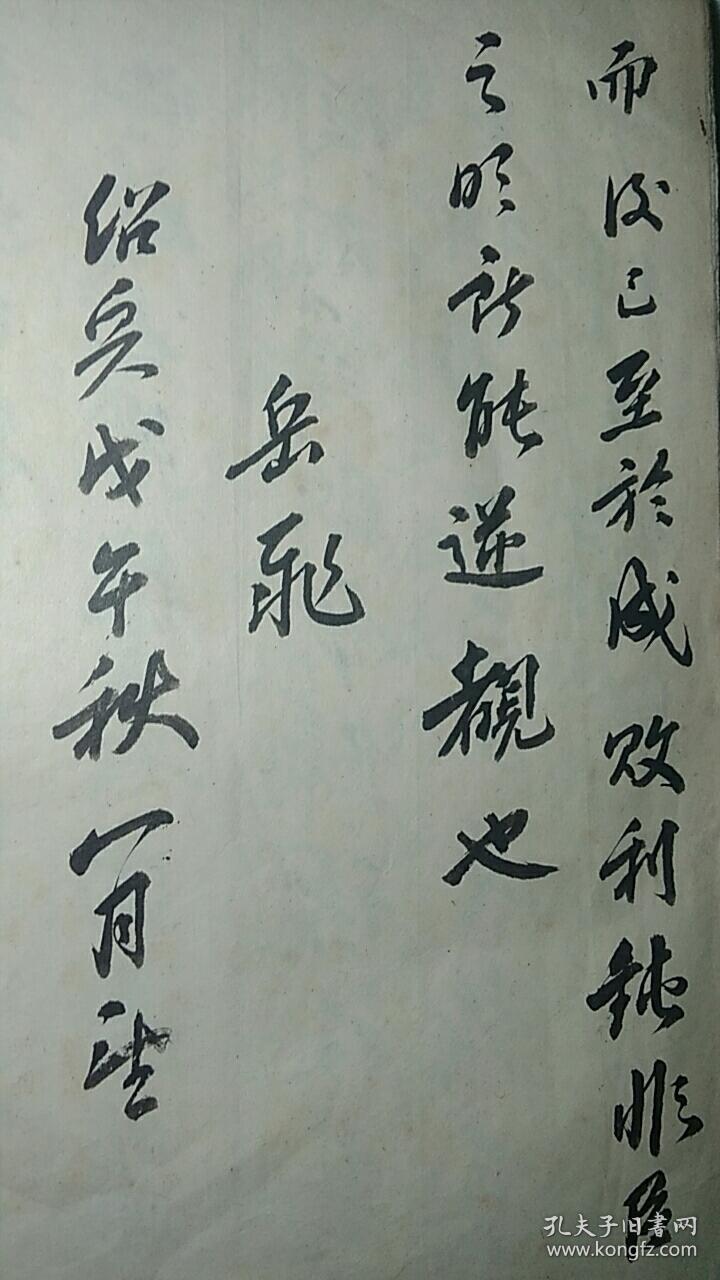 而後已至於成敗利鈍非臣
之明所能逆覩也
岳飛
紹興戊午秋八月望
孔夫子旧書网
www.kongfz.com